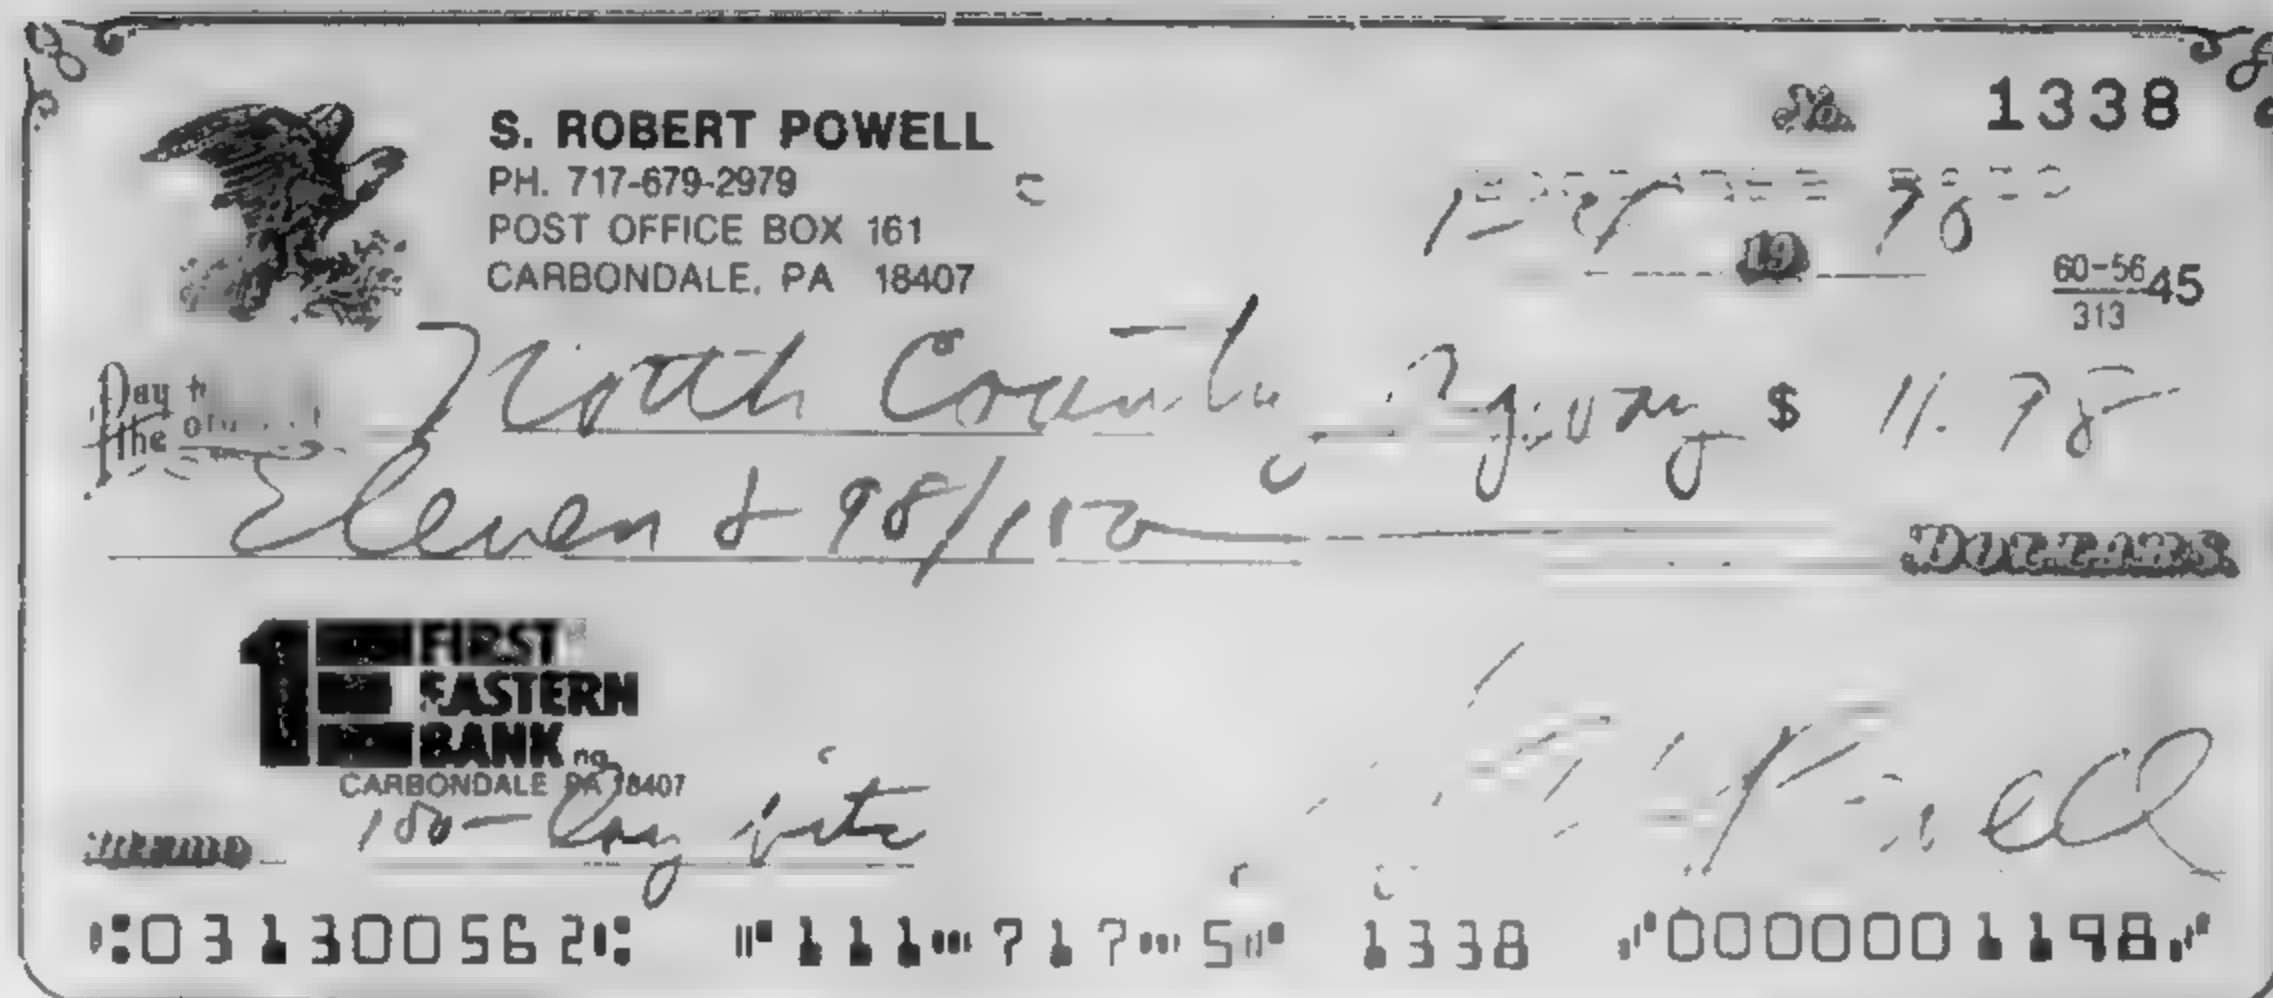 No. 1338
S. ROBERT POWELL
PH. 717-679-2979
POST OFFICE BOX 161
CARBONDALE, PA 18407
19
60-56 45
313
Pay to the order of North County $ 11.98
Eleven & 98/100 DOLLARS
1 FIRST EASTERN BANK na
CARBONDALE PA 18407
Memo 100
⑆031300562⑆ ⑈111⑉717⑉5⑈ 1338 ⑈0000001198⑈